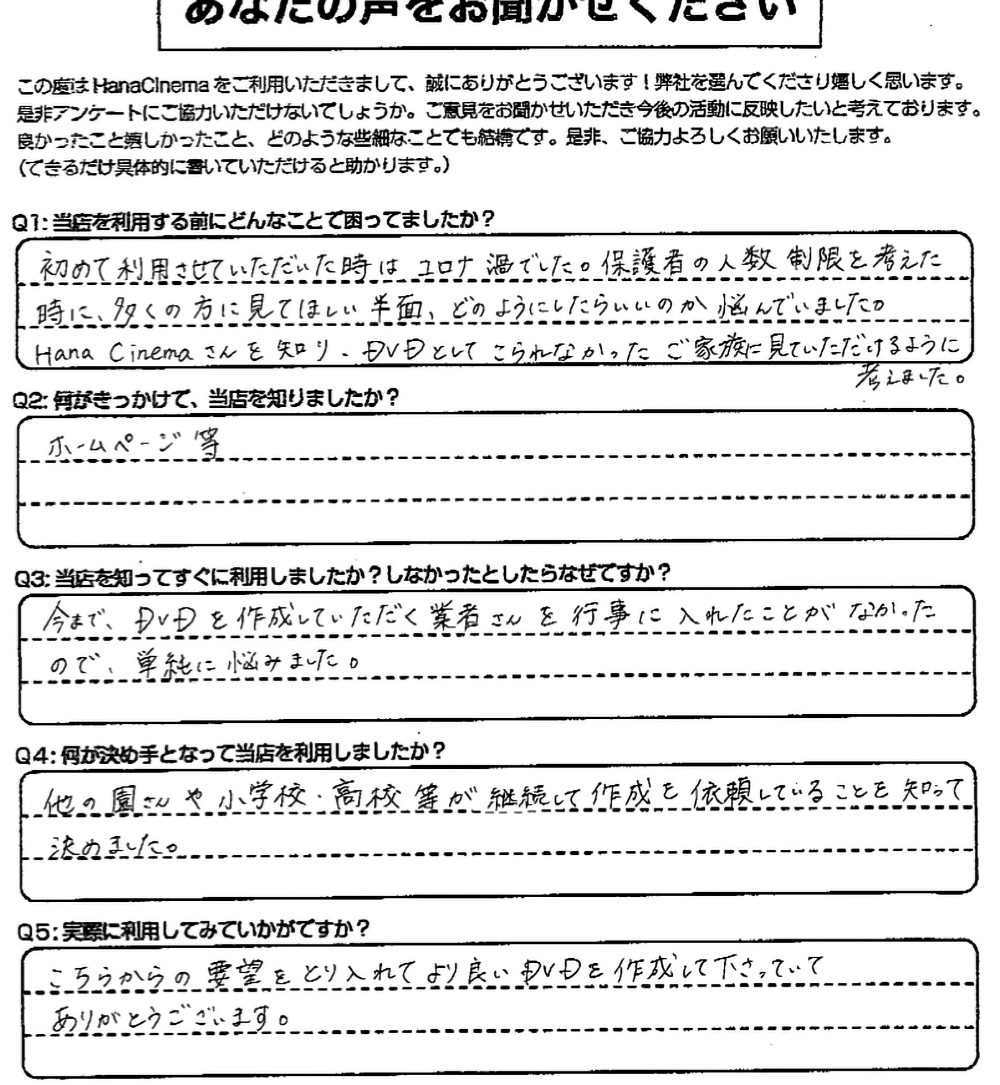 あなたの声をお聞かせください
この度はHanaCinemaをご利用いただきまして、誠にありがとうございます！弊社を選んでくださり嬉しく思います。
是非アンケートにご協力いただけないでしょうか。ご意見をお聞かせいただき今後の活動に反映したいと考えております。
良かったこと嬉しかったこと、どのような些細なことでも結構です。是非、ご協力よろしくお願いいたします。
（できるだけ具体的に書いていただけると助かります。）
Q1:当店を利用する前にどんなことで困ってましたか？
初めて利用させていただいた時は コロナ渦でした。保護者の人数制限を考えた
時に、多くの方に見てほしい半面、どのようにしたらいいのか悩んでいました。
Hana Cinemaさんを知り、DVDとしてこられなかったご家族に見ていただけるように
考えました。
Q2:何がきっかけで、当店を知りましたか？
ホームページ等
Q3:当店を知ってすぐに利用しましたか？しなかったとしたらなぜですか？
今まで、DVDを作成していただく業者さんを行事に入れたことがなかった
ので、単純に悩みました。
Q4:何が決め手となって当店を利用しましたか？
他の園さんや小学校・高校等が継続して作成を依頼していることを知って
決めました。
Q5:実際に利用してみていかがですか？
こちらからの要望をとり入れてより良いDVDを作成して下さっていて
ありがとうございます。